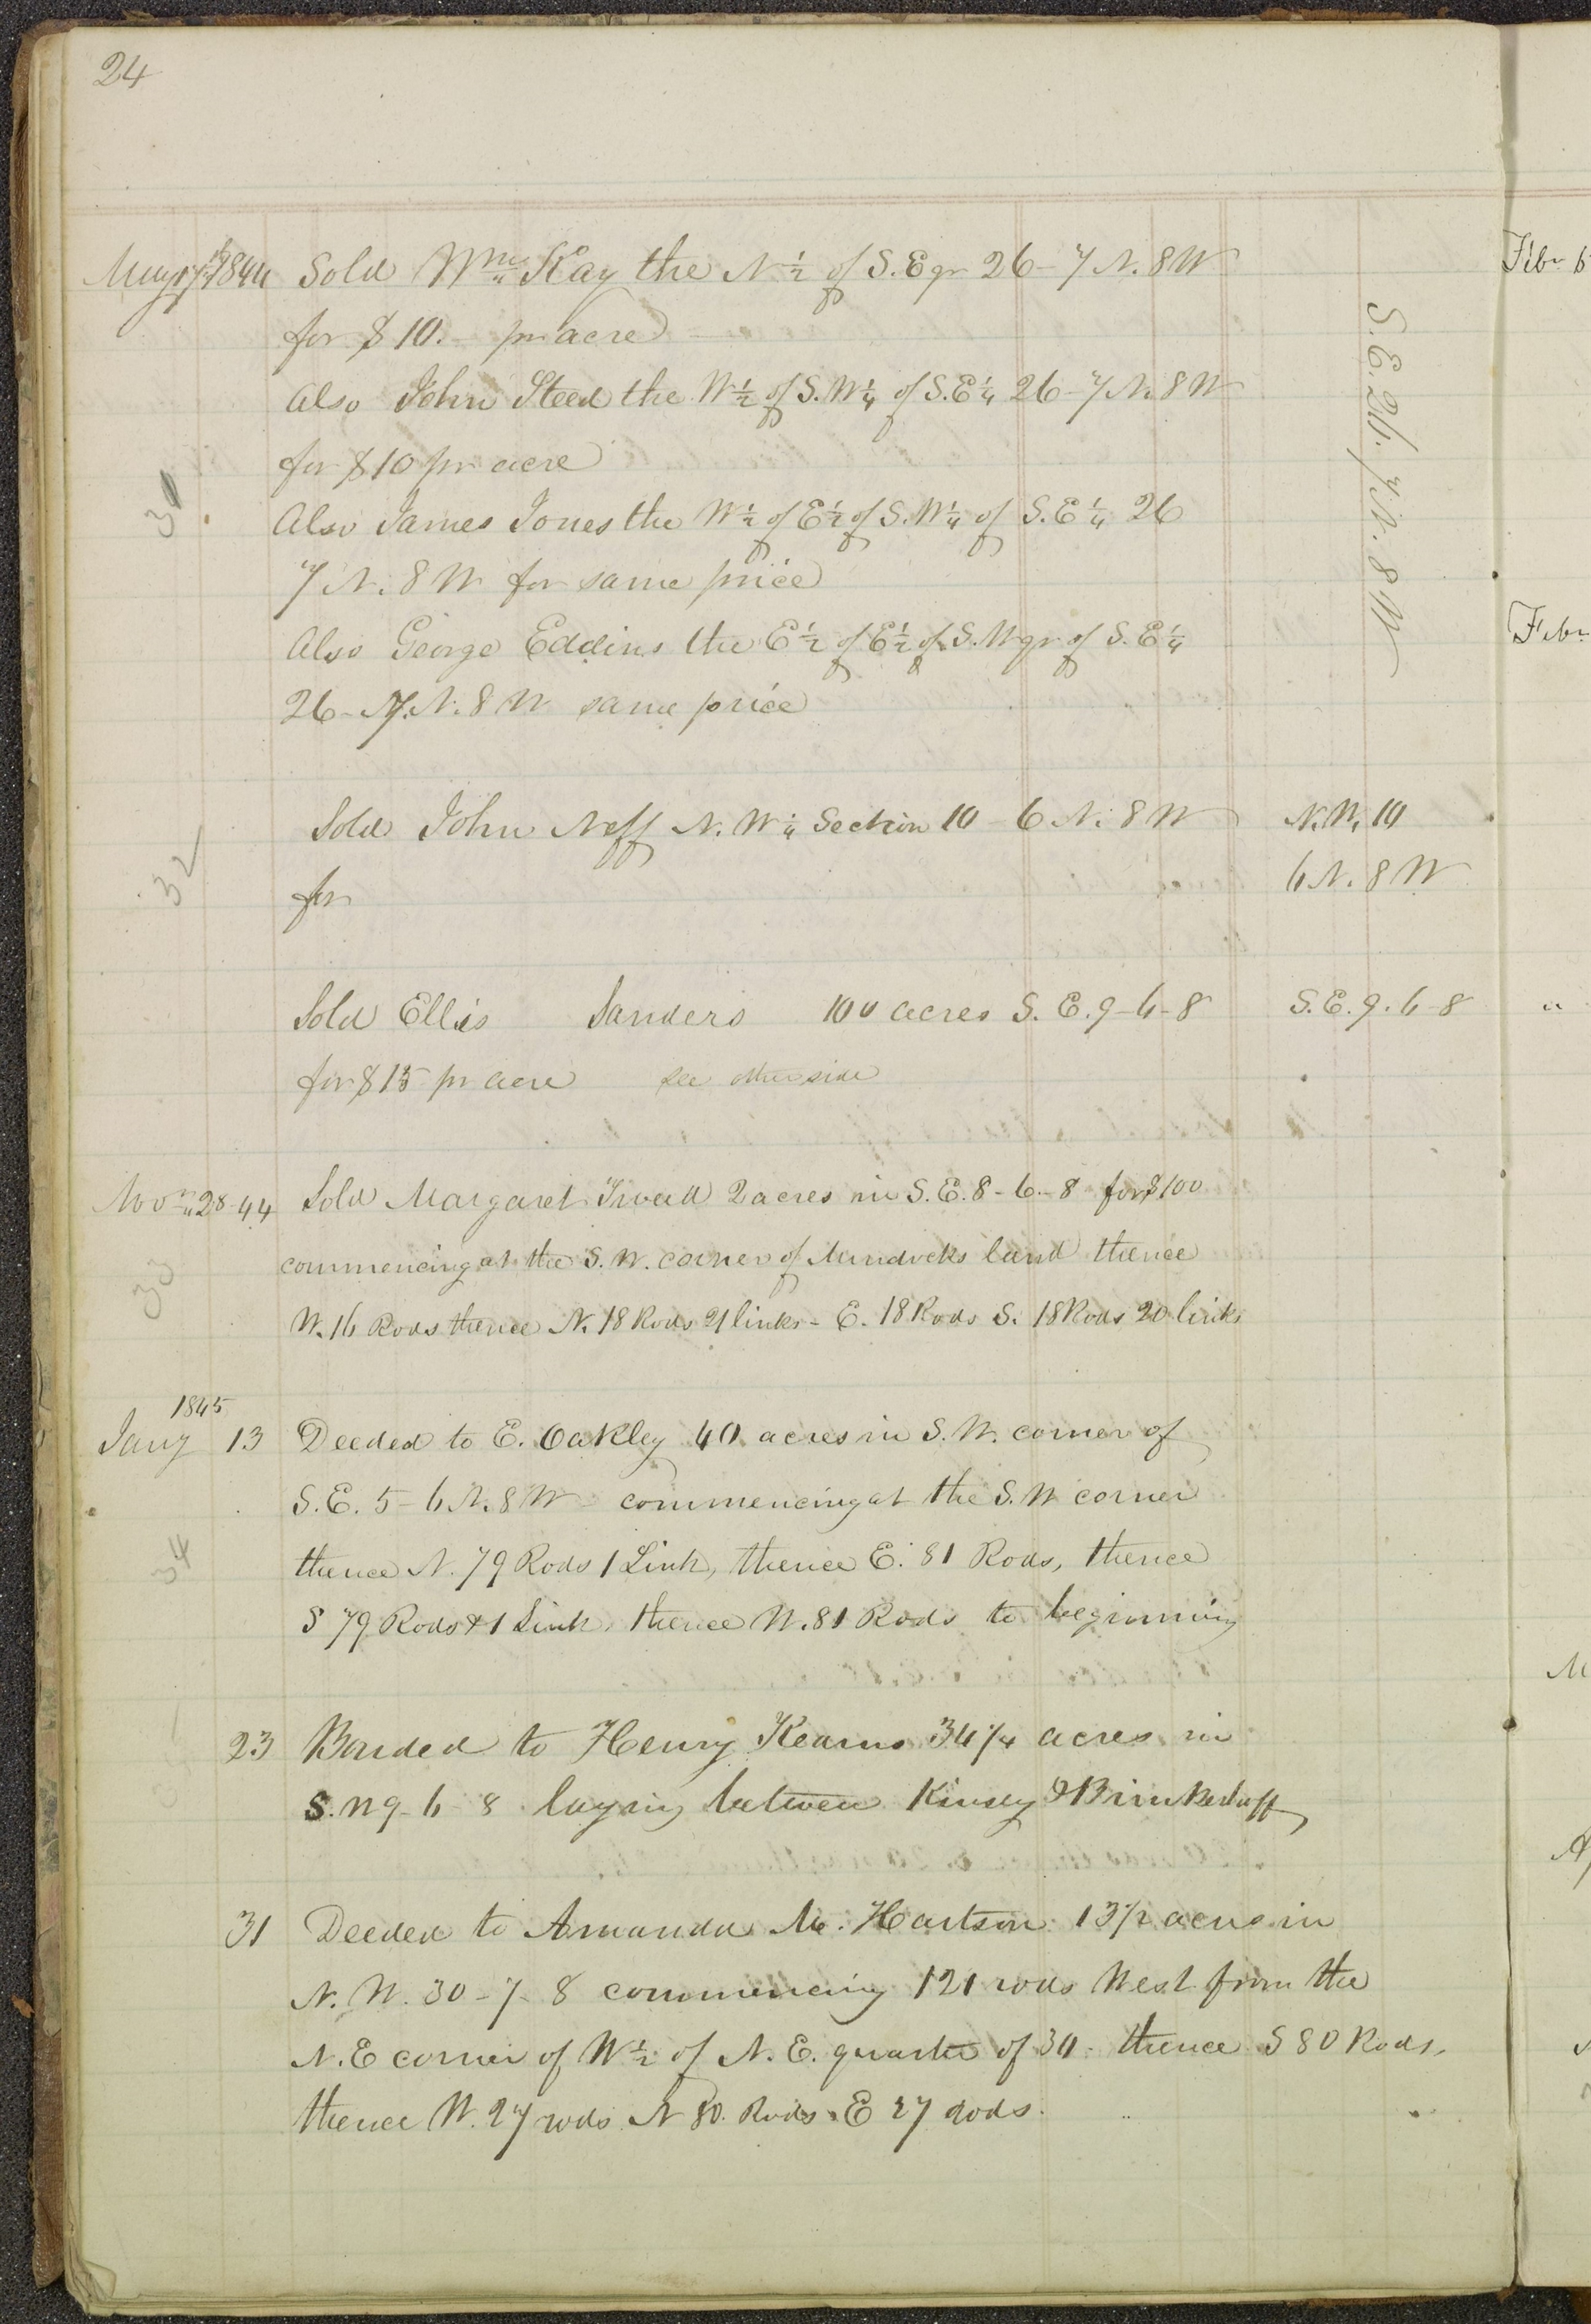 24
May 17 1844 Sold Wm Kay the N ½ of S.E qr 26 - 7 N. 8 W
for $10.- pr acre
Also John Steed the W ½ of S.W ¼ of S.E ¼ 26 - 7 N. 8 W
for $10 pr acre
S.E. 26. 7 N. 8 W
Also James Jones the W ½ of E ½ of S.W ¼ of S.E ¼ 26
7 N. 8 W for same price
Also George Eddins the E ½ of E ½ of S.W qr of S.E ¼
26 - 7. N. 8 W same price
Sold John Neff N. W ¼ Section 10 - 6 N. 8 W N. W. 10
32
for 6 N. 8 W
Sold Ellis Sanders 100 acres S. E. 9 - 6 - 8 S. E. 9. 6 - 8
for $15 pr acre see other side
Novr 28 44 Sold Margaret 2 acres in S. E. 8 - 6 - 8 for $100
commencing at the S. W. corner of land thence
33
W. 16 Rods thence N. 18 Rods 21 links - E. 18 Rods S. 18 Rods 20 links
1845
Jany 13 Deeded to E. Oakley 40 acres in S. W. corner of
S. E. 5 - 6 N. 8 W commencing at the S. W corner
34
thence N. 79 Rods 1 Link, thence E. 81 Rods, thence
S 79 Rods & 1 Link, thence W. 81 Rods to beginning
23 Bonded to Henry Kearns 34 ¼ acres in
S. W 9 - 6 - 8 laying between Kinsey & Brinkerhoff
31 Deeded to Amanda M. Hartson 13 ½ acres in
N. W. 30 - 7 - 8 commencing 121 rods West from the
N. E corner of W ½ of N. E. quarter of 30 - thence S 80 Rods,
thence W. 27 rods N 80. Rods. E 27 rods.
Febr 6
Febr